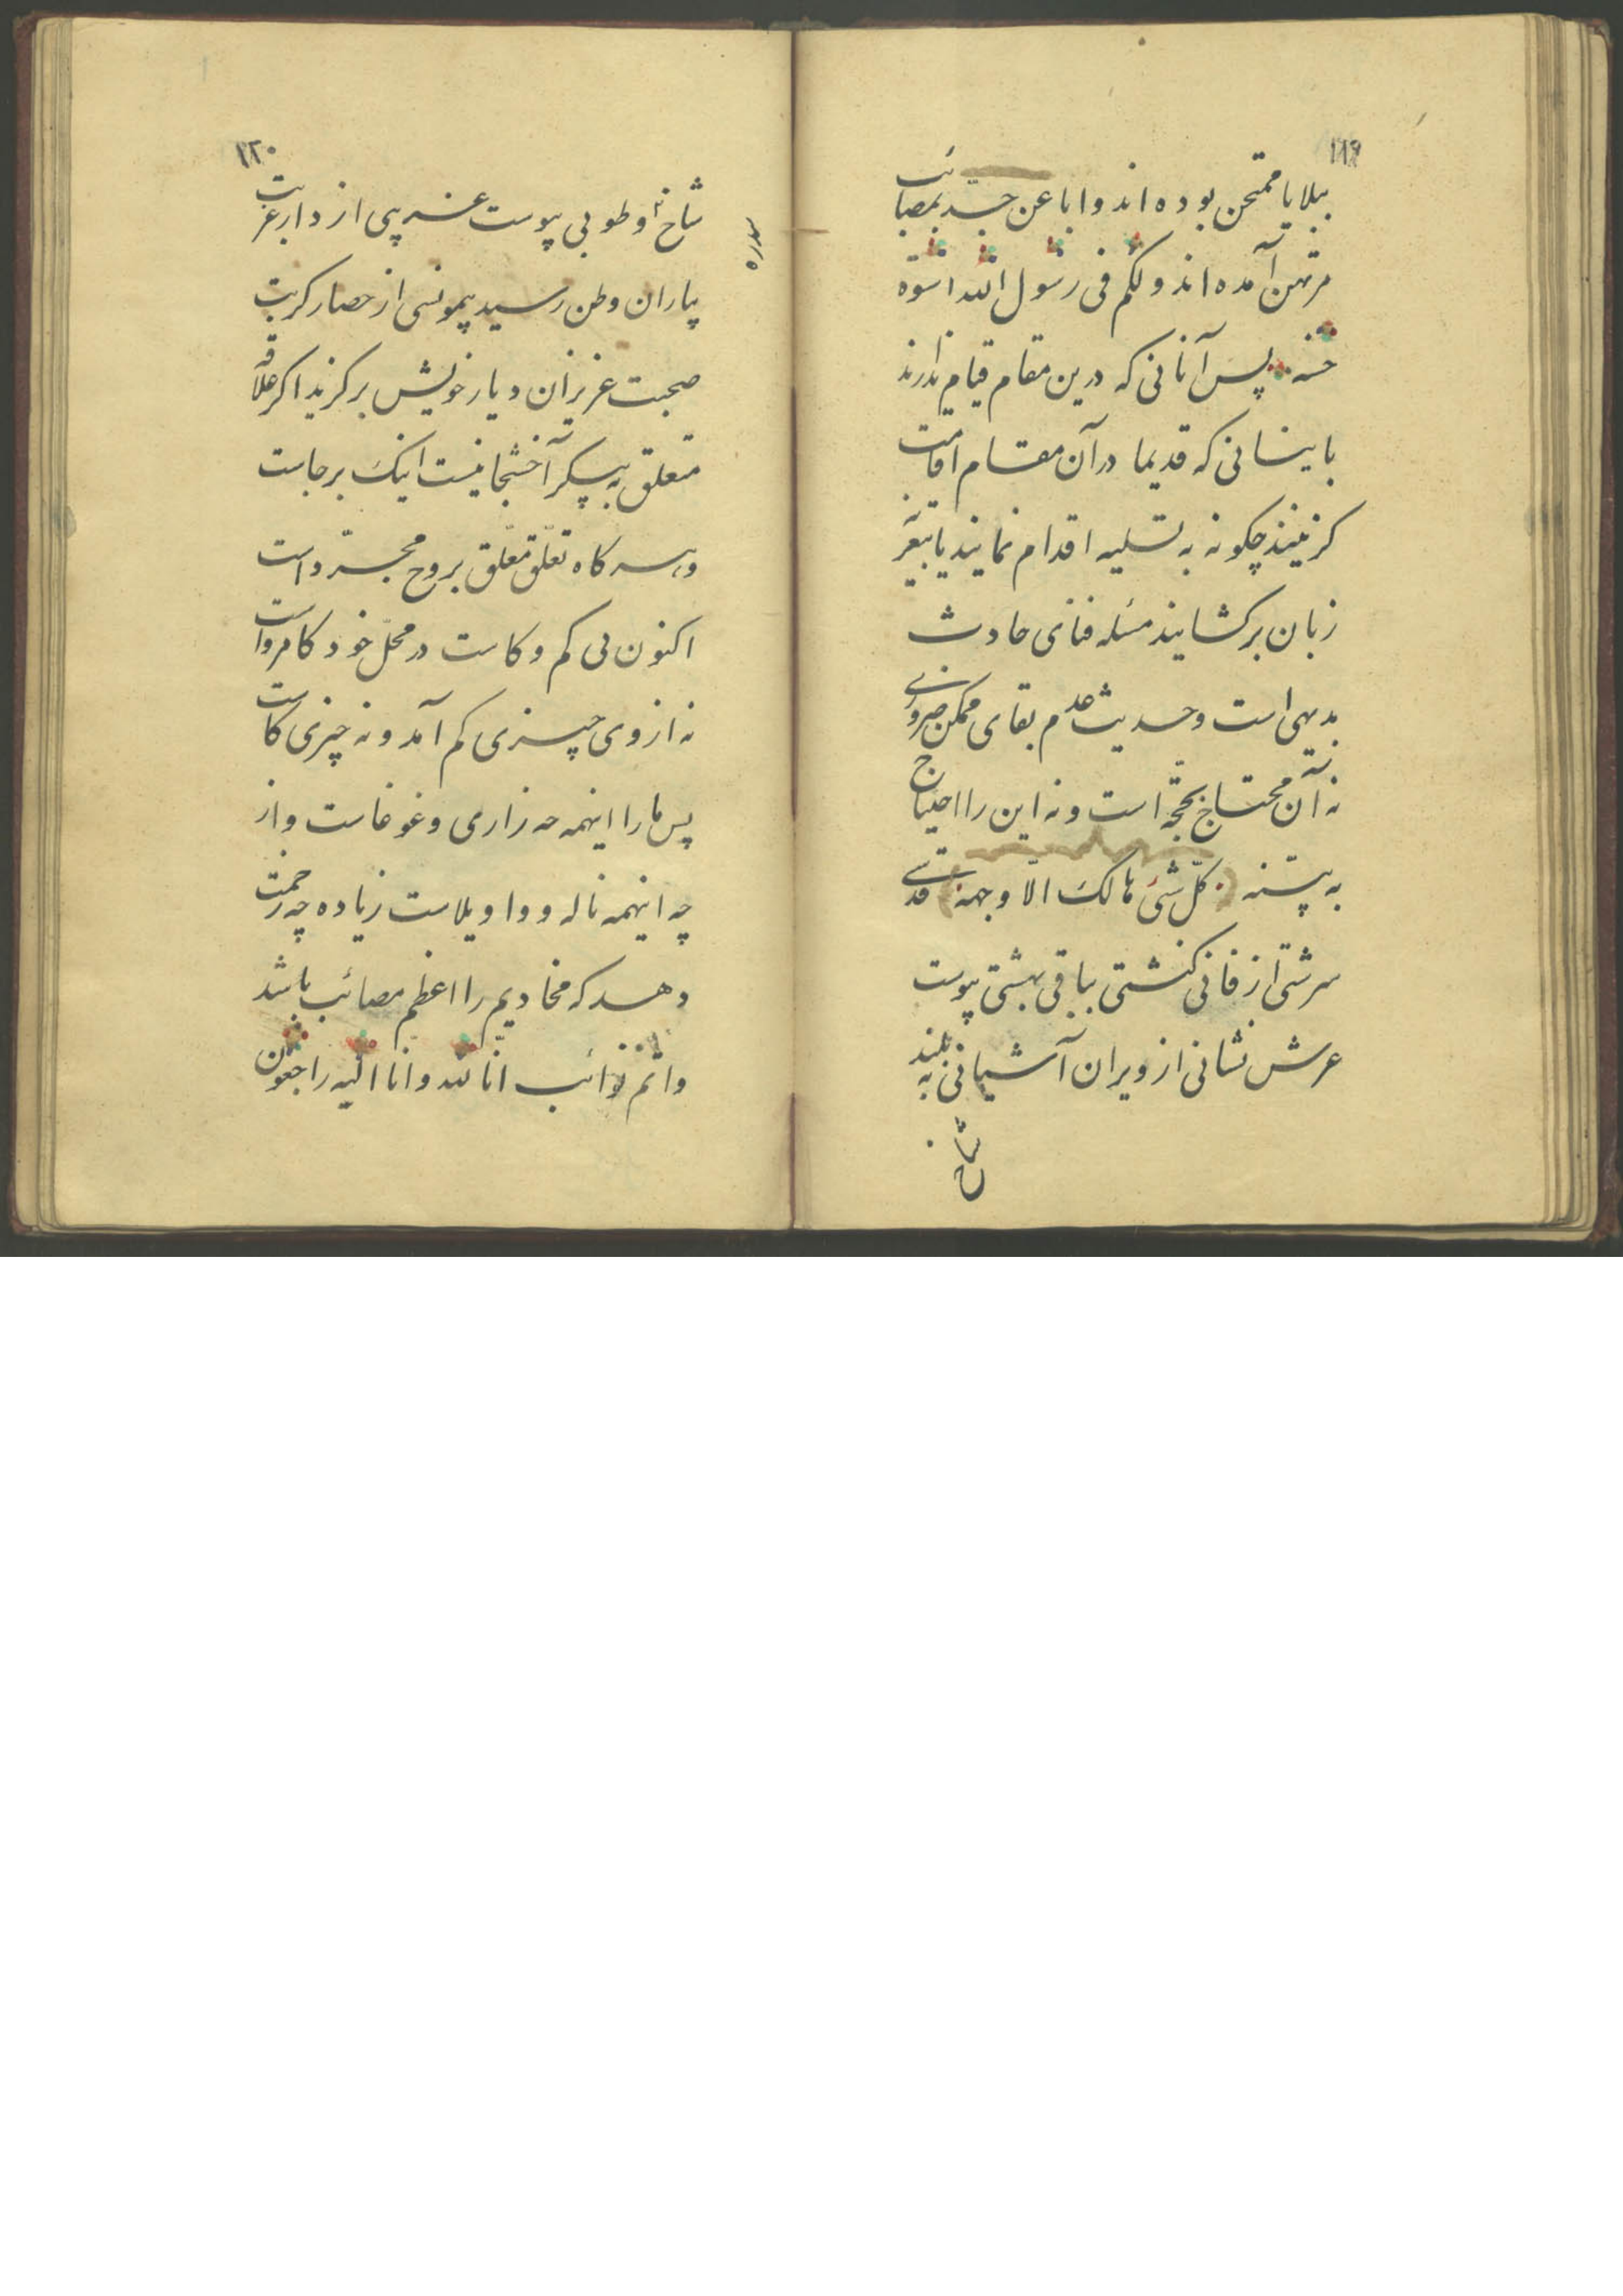 ۱۱۹
ببلایا ممتحن بوده اند و ابا عن جد بمصائب
مرتهن آمده اند و لکم فی رسول الله اسوة
حسنه پس آنانی که درین مقام قیام ندارند
باینسانی که قدیما در آن مقام اقامت
کزینند چکونه به تسلیه اقدام نمایند یا بتعزیه
زبان برکشایند مسئله فنای حادث
بدیهی است و حدیث عدم بقای ممکن ضروری
نه آن محتاج بحجة است و نه این را احتیاج
به بیّنه کلّ شئ هالک الّا وجهه قدسی
سرشتی از فانی کنشتی بباقی بهشتی پیوست
عرش نشانی از ویران آشیانی به بلند
شاخ
۱۲۰
شاخ او طوبی پیوست غریبی از دار غربت
سدره
بیاران وطن رسید یمونسی از حصار کربت
صحبت عزیزان دیار خویش برکزید اکر علاقه
متعلق به پیکر آخشیجانیست اینک برجاست
و سرکاه تعلّق معلّق بروح مجرّد است
اکنون بی کم و کاست در محلّ خود کامرواست
نه از وی چیزی کم آمد و نه چیزی کاست
پس ما را اینهمه چه زاری و غوغاست و از
چه اینهمه ناله و واویلاست زیاده چه زحمت
دهد که مخادیم را اعظم مصائب باشد
واتم نوائب انّا لله و انا الیه راجعون